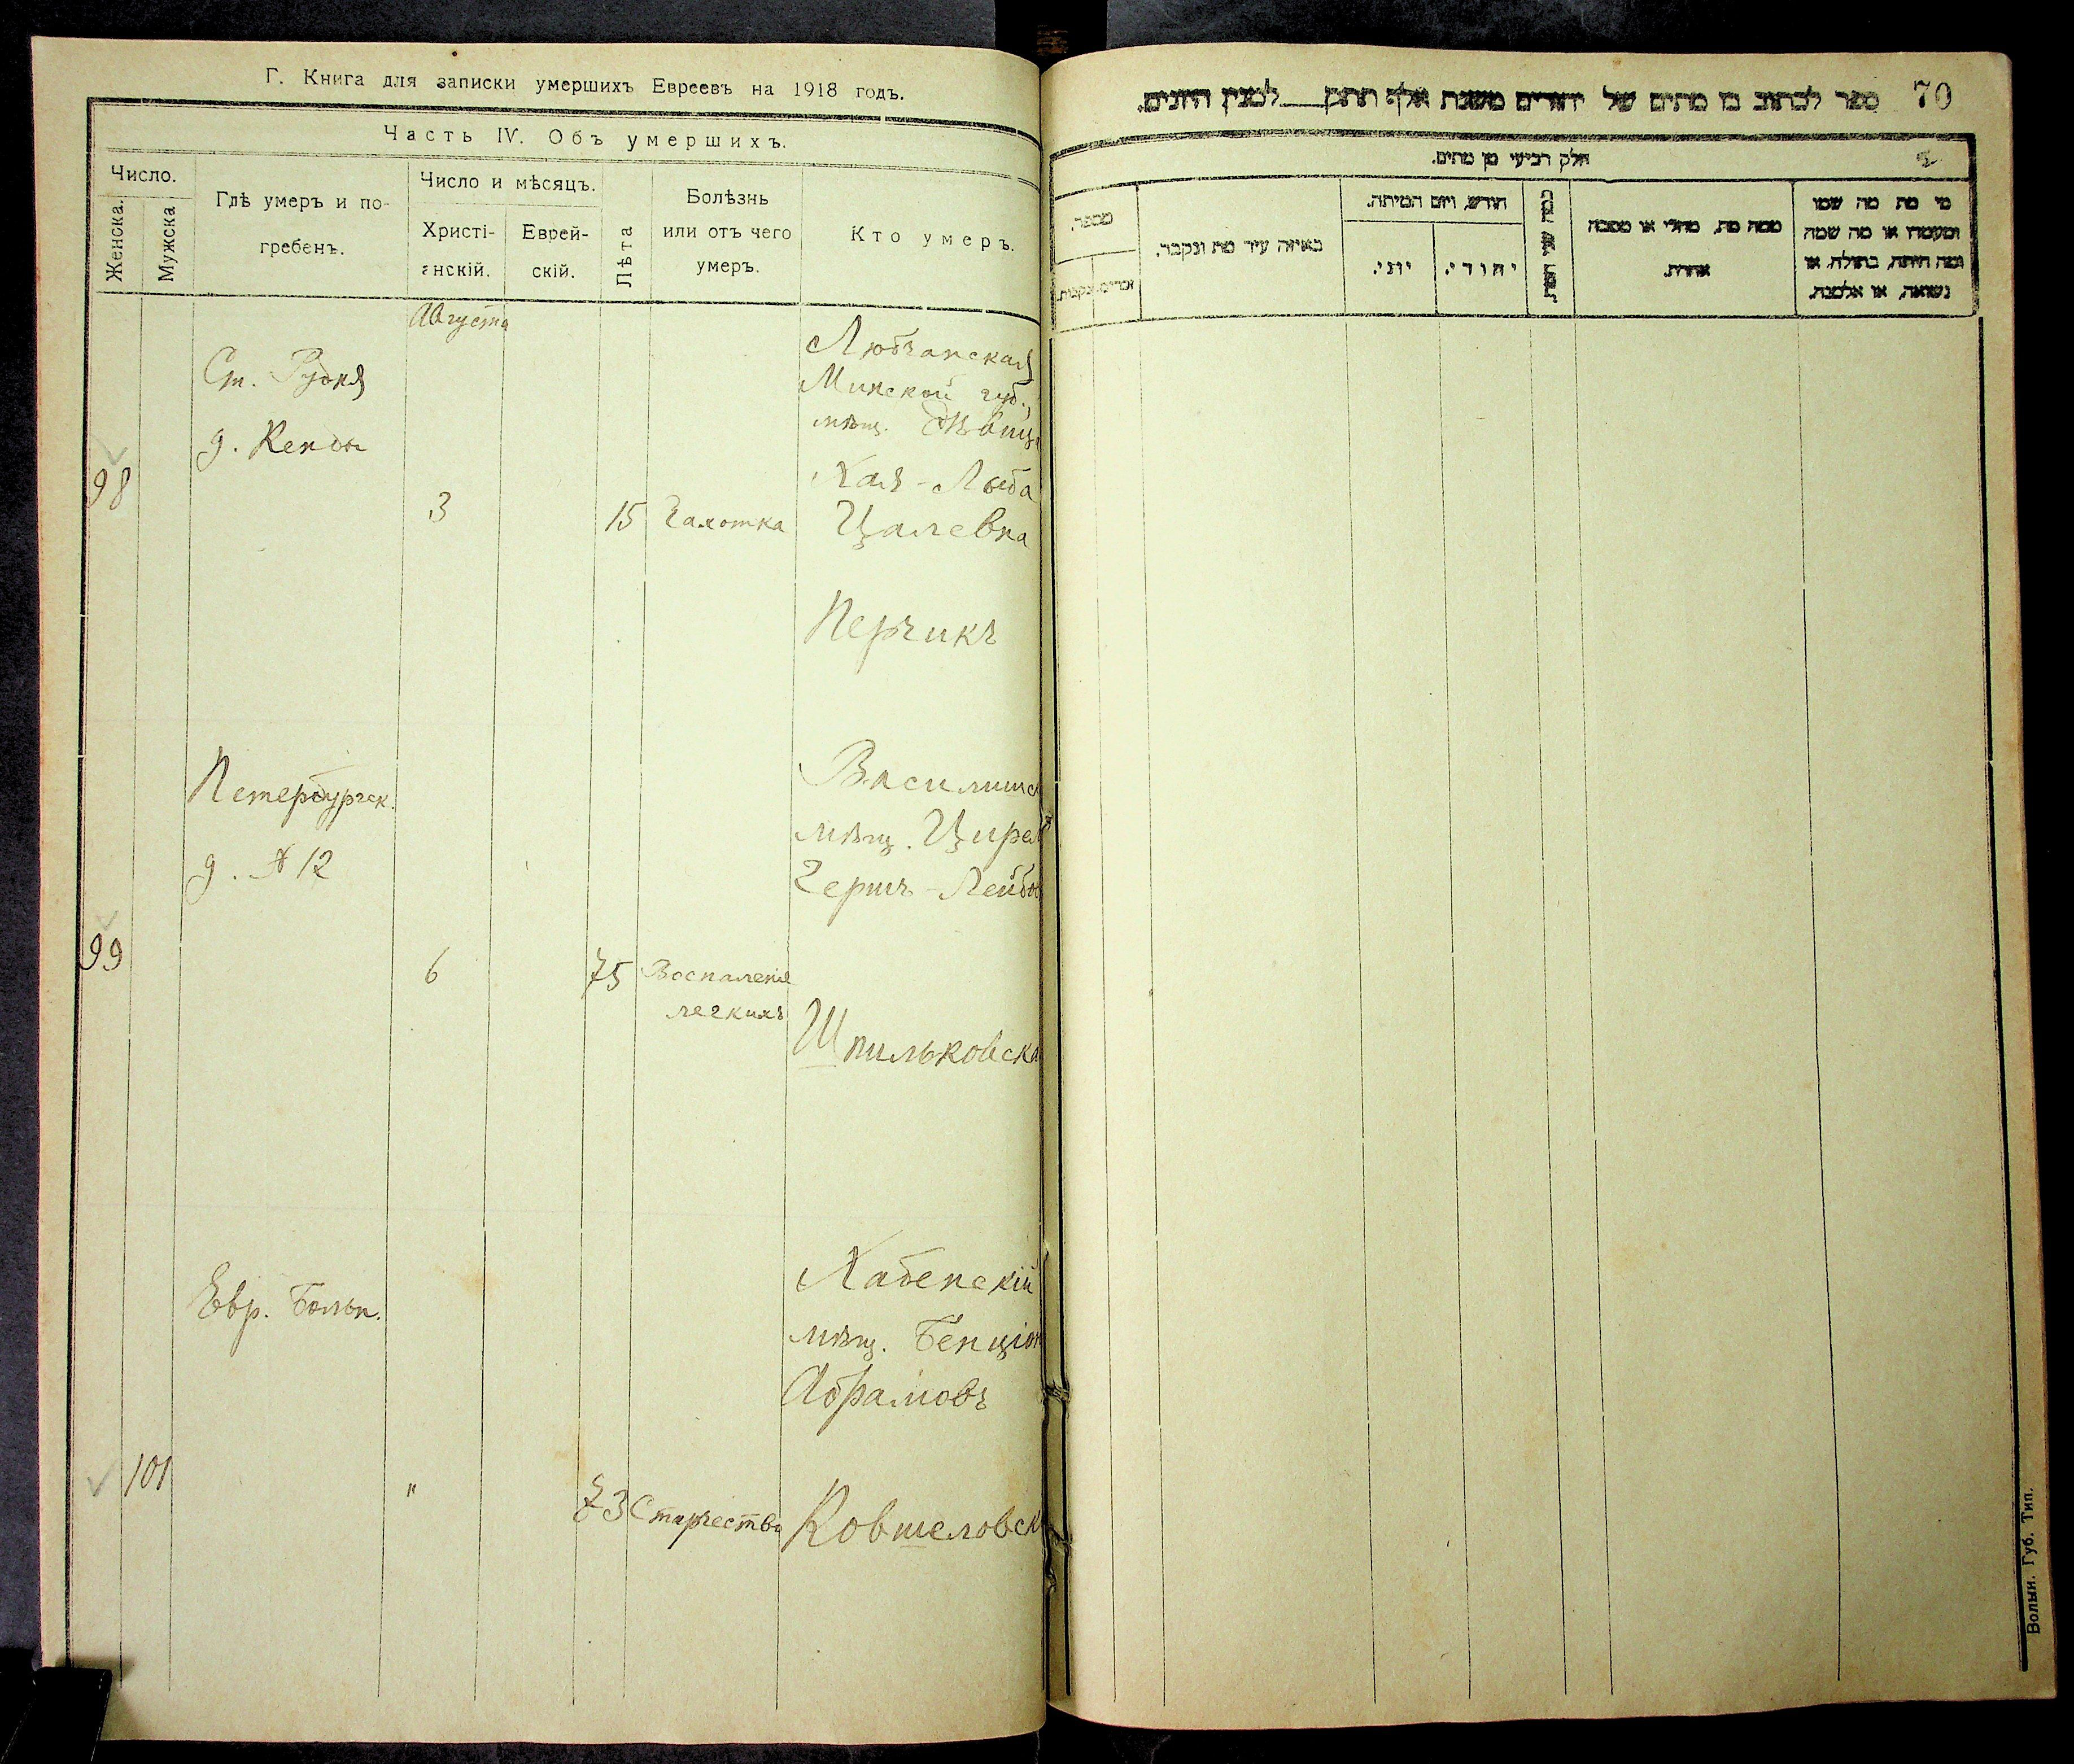 Г. Книга для записки умершихъ Евреевъ на 1918 годъ.
Часть IV. Объ умершихъ.
Число.
Женска.
Мужска
Гдѣ умеръ и по-
гребенъ.
Число и мѣсяцъ.
Христі-
анскій.
Еврей-
скій.
Лѣта
Болѣзнь
или отъ чего
умеръ.
Кто умеръ.
Августа
98
Ст. Рудня
д.
3
15
Чахотка
Любчанская
Минской губ.,
мѣщ.
Хая-Лыба
Цалевна
Перчикъ
99
Петербургск.
д. № 12
6
75
Воспаленіе
легкихъ
мѣщ.
Шпильковска
101
Евр. Больн.
"
73
Старчество
мѣщ. Бенціон
Абрамовъ
Ковшеловск
70
ספר לכתוב בו מתים של יהודים משנת אלף תתקן למנין היונים.
חלק רביעי מן מתים.
מספר.
זכרים.
נקבות.
באיזה עיר מת ונקבר.
חודש, ויום המיתה.
יוני.
יהודי.
ממה מת, מחלי או מסבה
אחרת.
מי מת מה שמו
ומעמדו או מה שמה
ומה היתה, בתולה, או
נשואה, או אלמנה.
Волын. Губ. Тип.